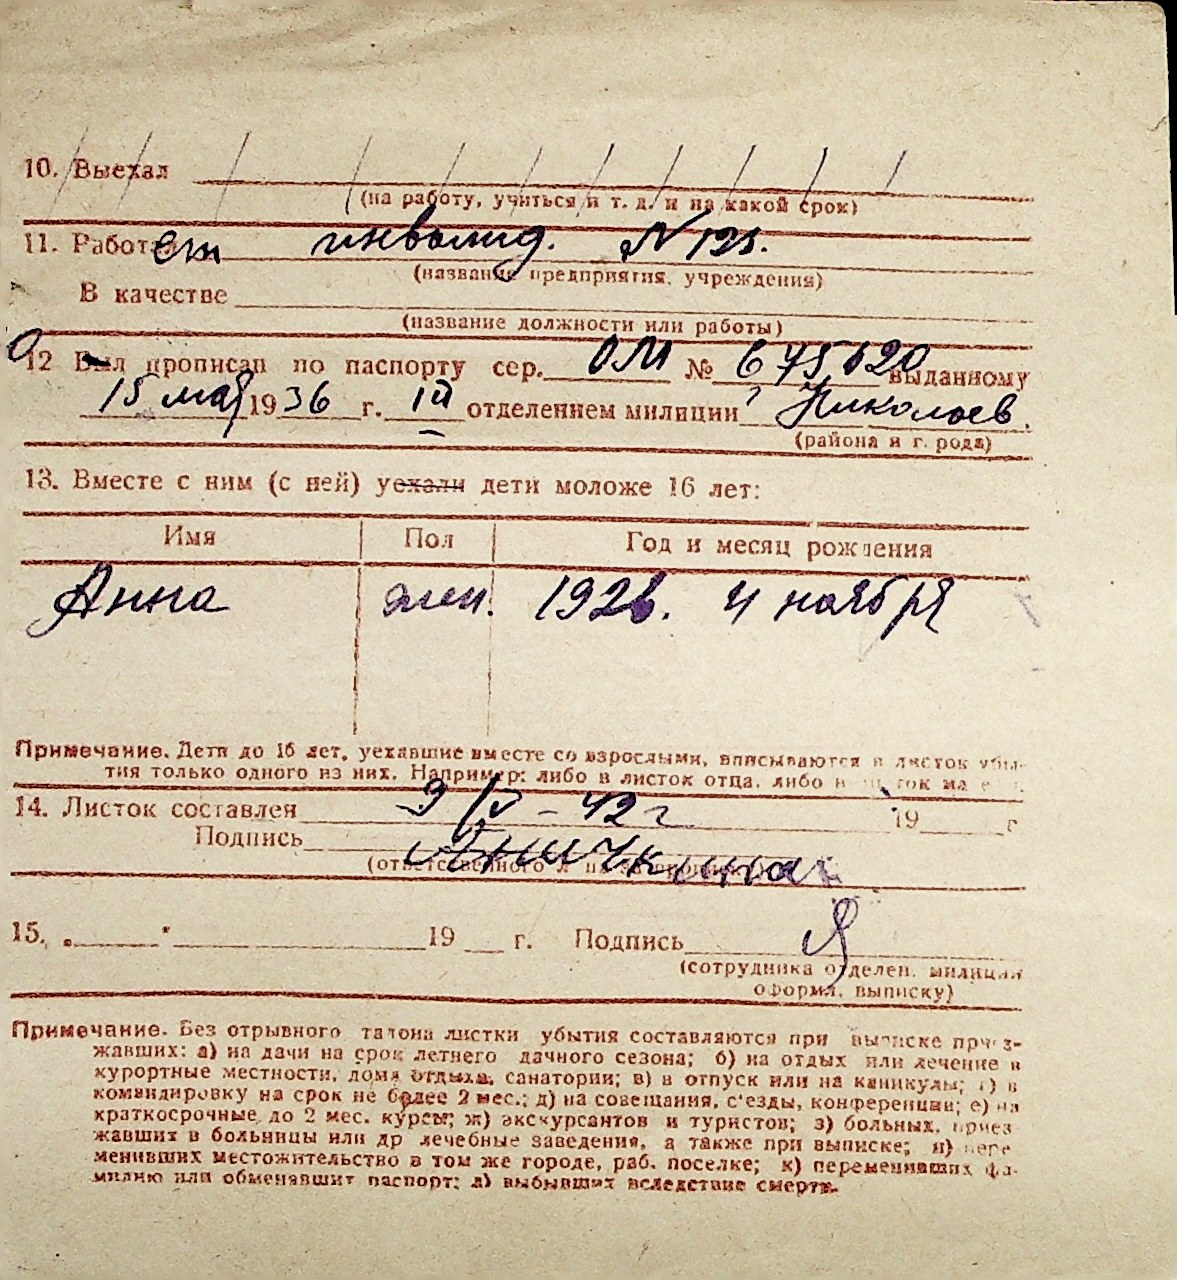 10. Выехал
(на работу, учиться и т. д. и на какой срок)
11. Работа ет инвалид. № 121.
(название предприятия, учреждения)
В качестве
(название должности или работы)
12 Был прописан по паспорту сер. ОМ № 675620 выданному
15 мая 1936 г. III отделением милиции г Николаев.
(района и г. рода)
13. Вместе с ним (с ней) уехали дети моложе 16 лет:
Имя Пол Год и месяц рождения
Анна жен. 1926. 4 ноября
Примечание. Дети до 16 лет, уехавшие вместе со взрослыми, вписываются в листок убы-
тия только одного из них. Например: либо в листок отца, либо в листок матери.
14. Листок составлен 9/IV - 42 г 19 г
Подпись Яничкина
(ответственного за прописку)
15. „ " 19 г. Подпись
(сотрудника отделен. милиции
оформл. выписку)
Примечание. Без отрывного талона листки убытия составляются при выписке приез-
жавших: а) на дачи на срок летнего дачного сезона; б) на отдых или лечение в
курортные местности, дома отдыха, санатории; в) в отпуск или на каникулы; г) в
командировку на срок не более 2 мес.; д) на совещания, съезды, конференции; е) на
краткосрочные, до 2 мес. курсы; ж) экскурсантов и туристов; з) больных, приез
жавших в больницы или др лечебные заведения, а также при выписке; и) пере
менивших местожительство в том же городе, раб. поселке; к) переменивших фа-
милию или обменявших паспорт; л) выбывших вследствие смерти.